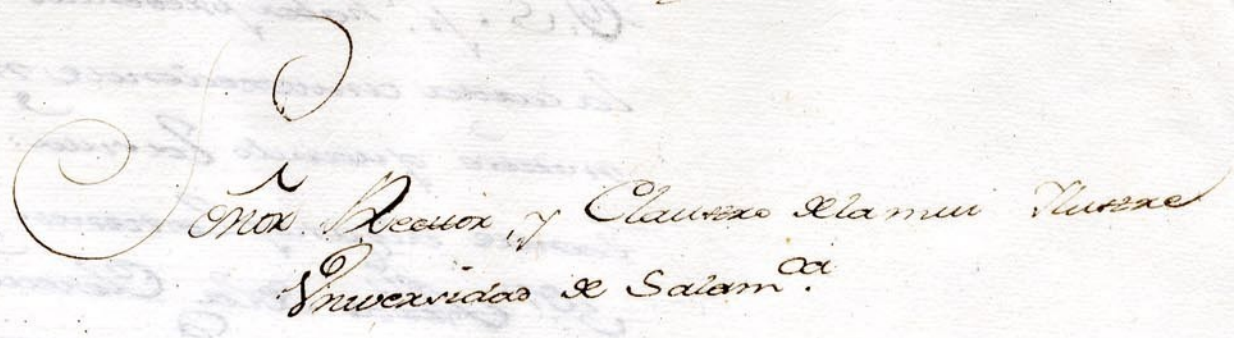 Señor Rector, y Claustro de la mui Ylustre
Vniversidad de Salam.ca